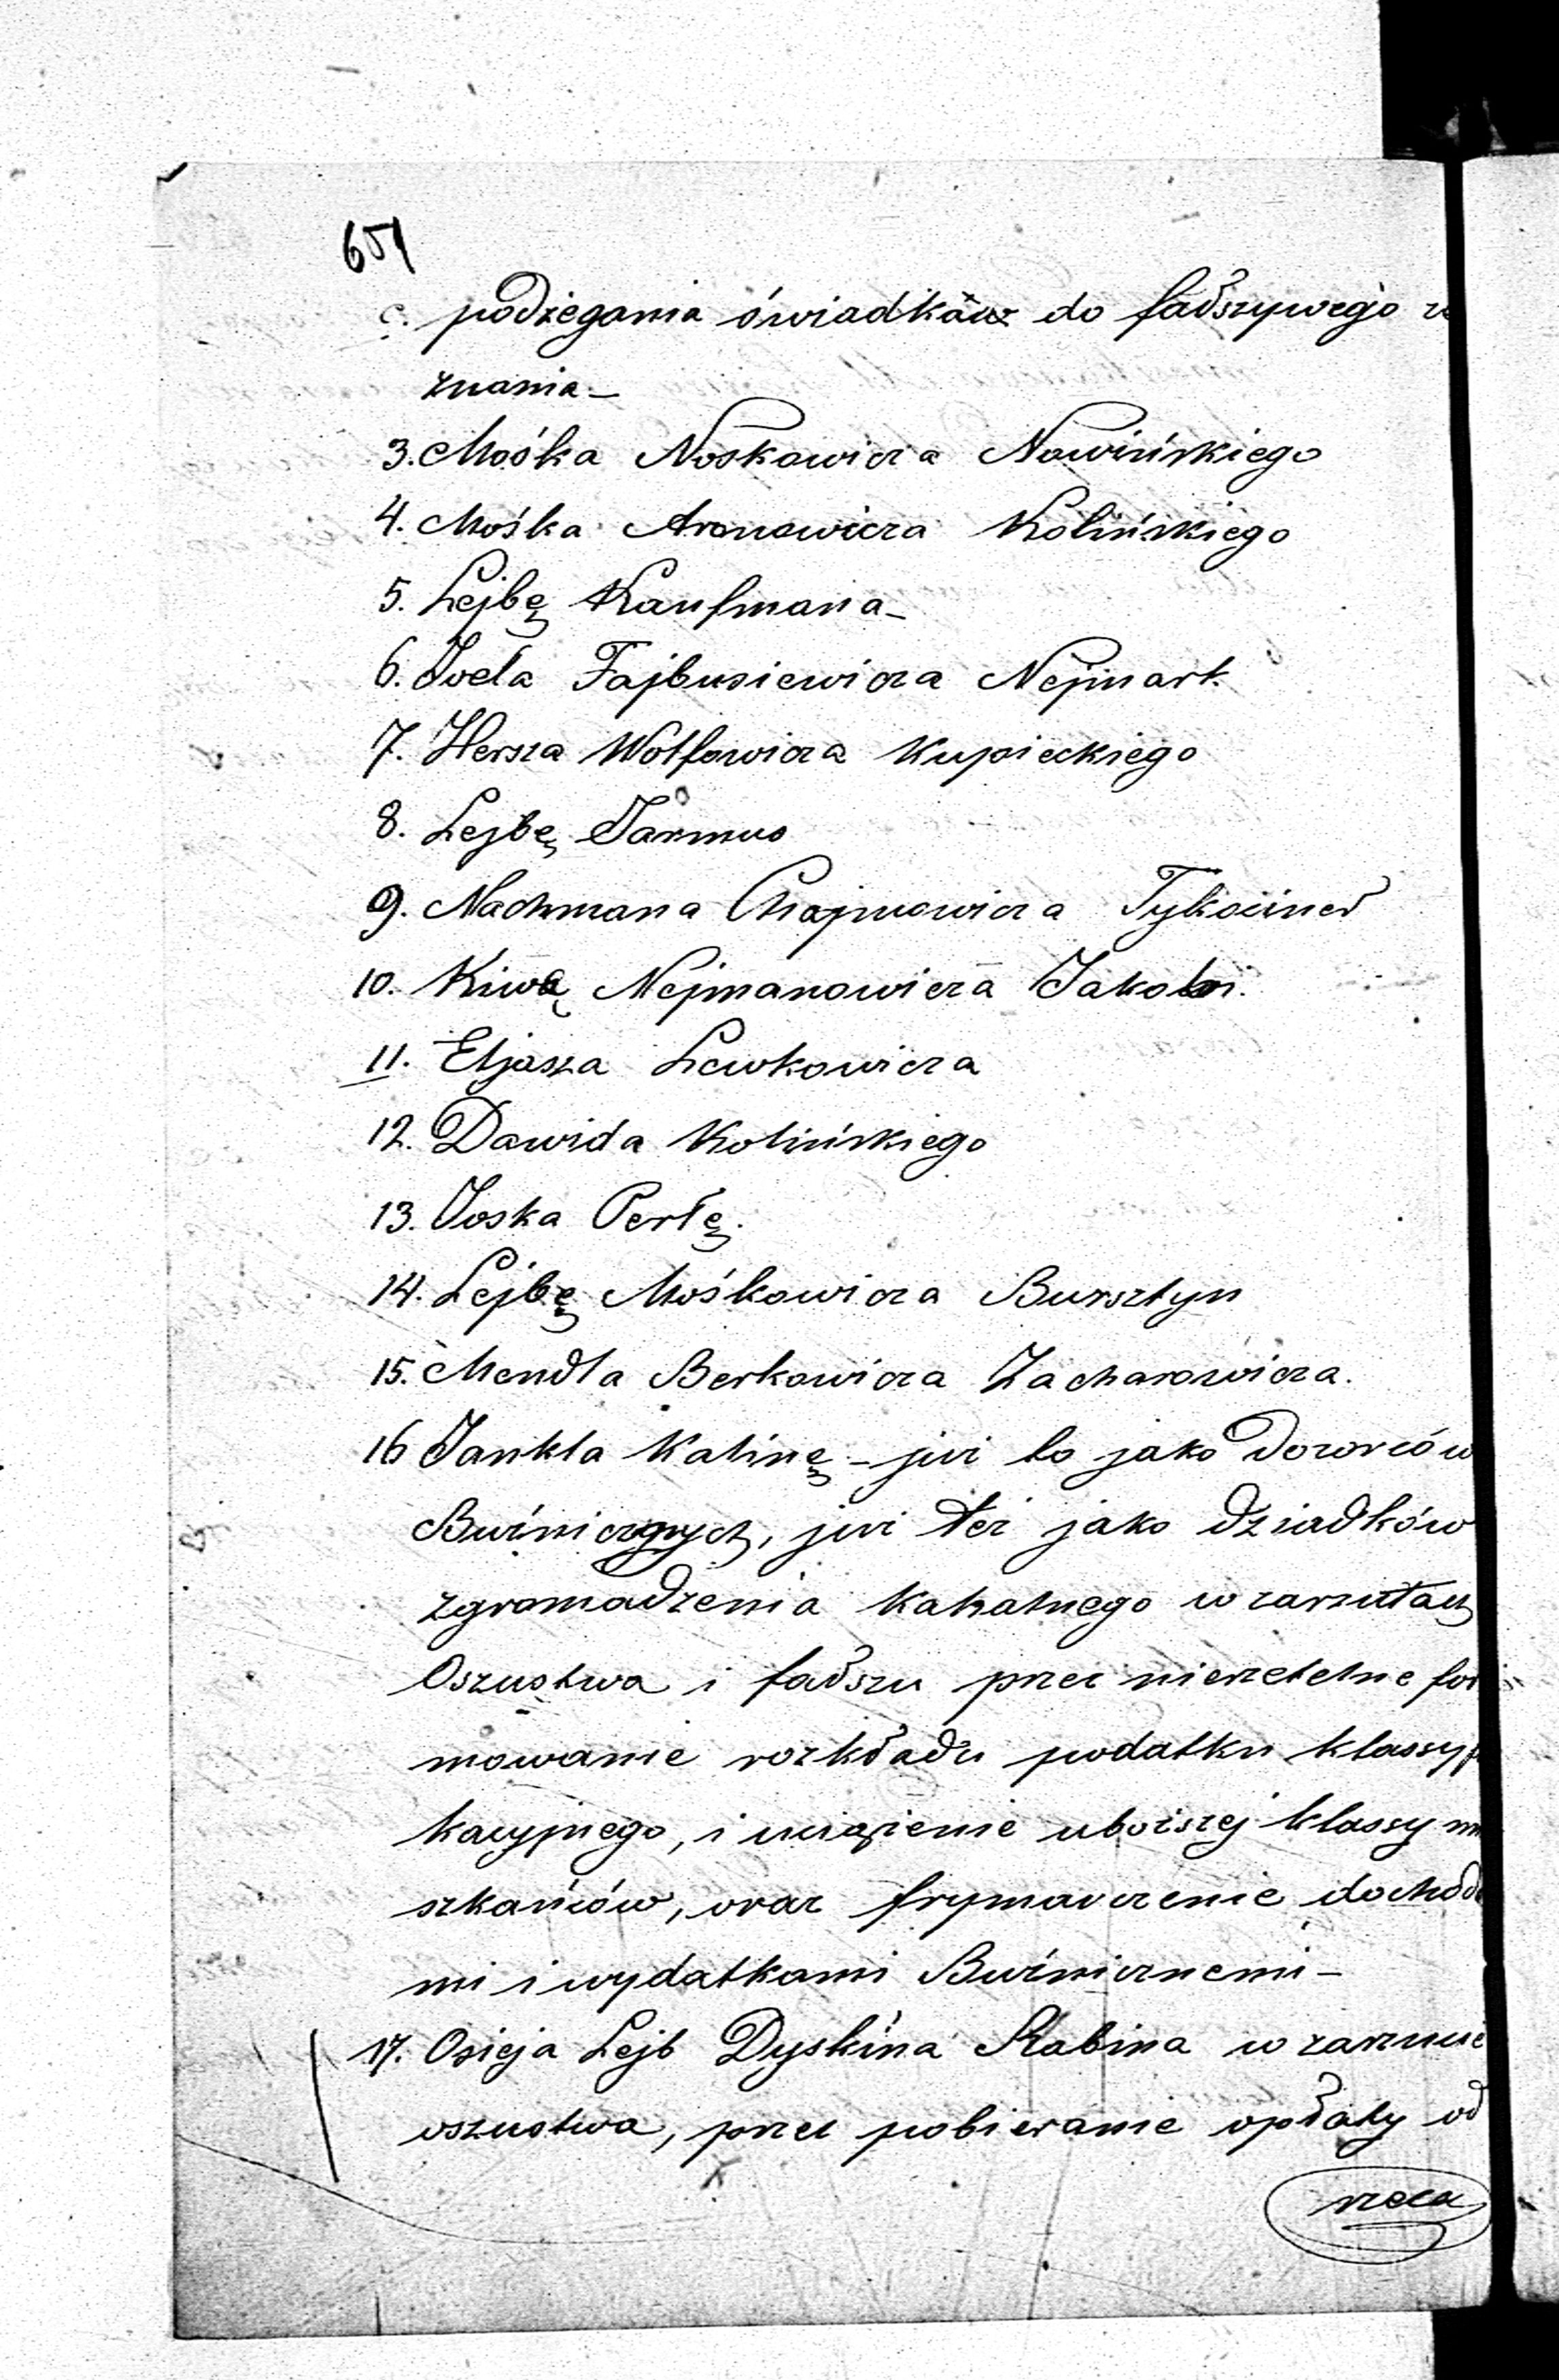 651
c. podżegania świadków do fałszywego ze
znania_
3. Mośka Noskowicza Nowińskiego
4. Mośka Aronowicza Kolińskiego
5. Lejbę Kaufmana_
6. Joela Fajbusiewicza Nejmark
7. Hersza Wolfowicza Kupieckiego
8. Lejbę Jarmus
9. Nachmana Chajmowicza Tykociner
10. Kiwę Nejmanowicza Jakobi.
11. Eljasza Lewkowicza
12. Dawida Kolińskiego
13. Joska Perłę.
14. Lejbę Mośkowicza Bursztyn
15. Mendla Berkowicza Zacharowicza.
16 Jankla Kalinę – już to jako Dozorców
Bużniczych, już też jako dziadków
zgromadzenia Kahalnego w zarzutach
Oszustwa i fałszu przez nierzetelne for
mowanie rozkładu podatku klassyfi
kacyjnego, i uciążenie uboższej klassy mie
szkańców, oraz frymarczenie dochoda
mi i wydatkami Bużnicznemi –
17. Osieja Lejb Dyskina Rabina w zarzucie
oszustwa, przez pobieranie opłaty od
rzeza